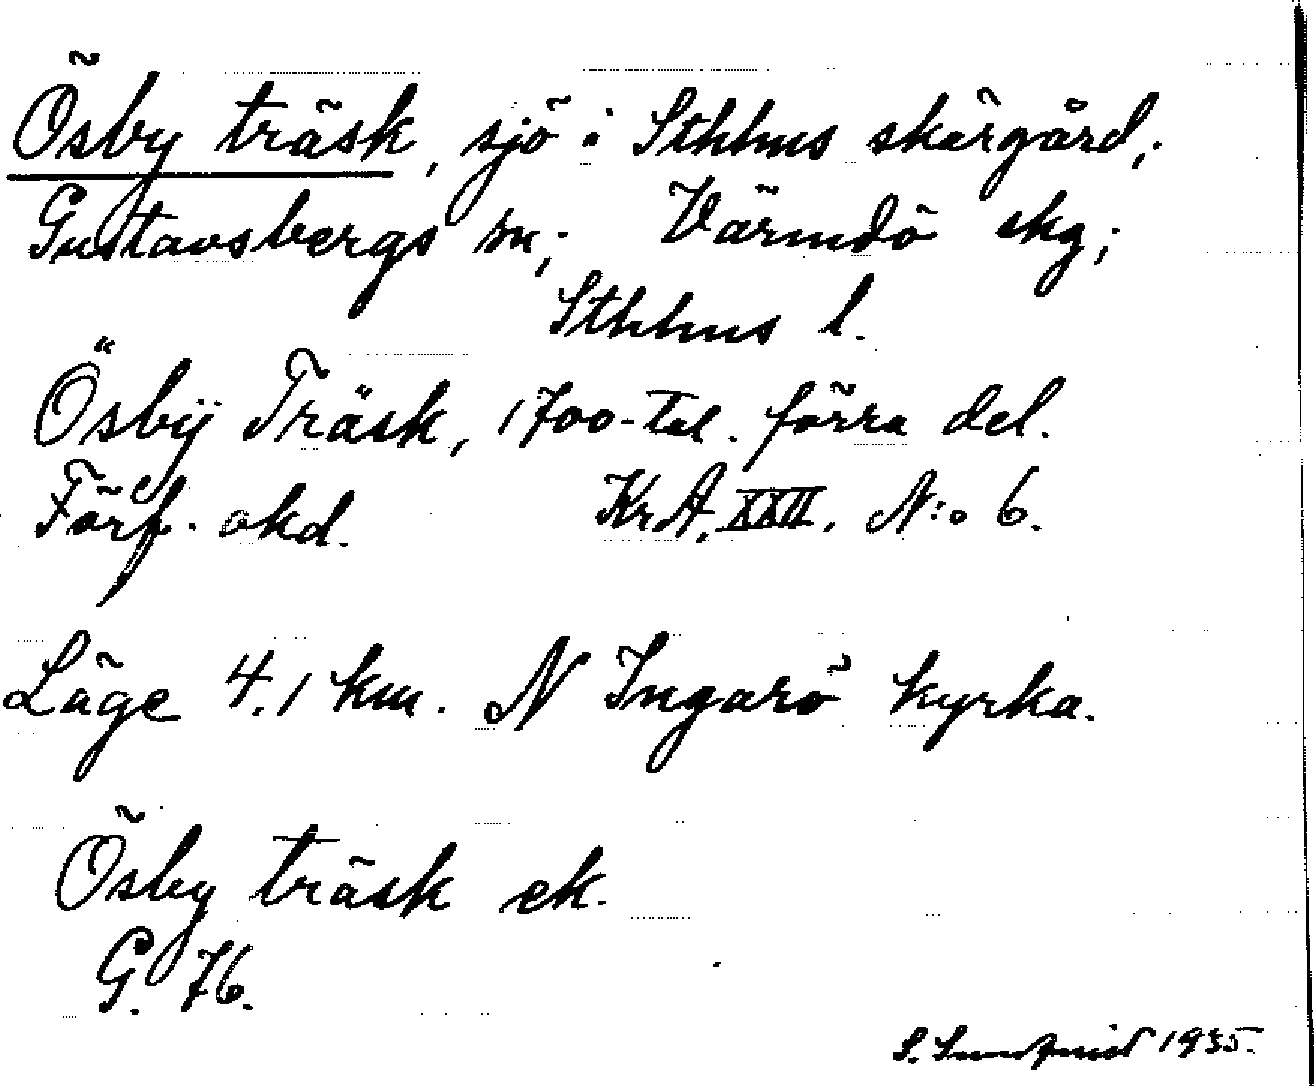 Ösby träsk, sjö i Sthlms skärgård;
Gustavsbergs sn; Värmdö skg;
Sthlms l.
Ösbÿ Träsk, 1700-tal. förra del.
Förf. okd. KrA, XXII. N:o 6.
Läge 4.1 km. N Ingarö kyrka.
Ösby träsk ek.
G. 76.
S. 1935.